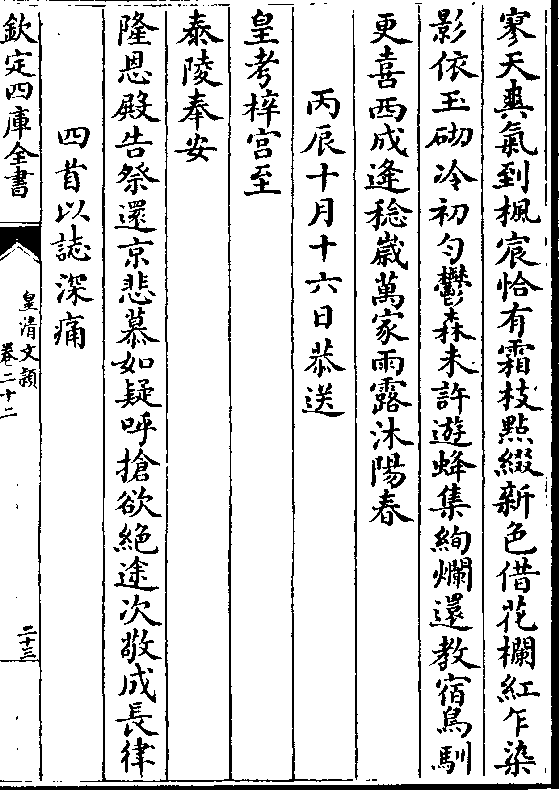 寥天爽氣到楓宸恰有霜枝點綴新色借花欄紅乍染
影依玉砌冷初勻鬱森未許遊蜂集絢爛還教宿鳥馴
更喜西成逢稔嵗萬家雨露沐陽春
丙辰十月十六日恭送
皇考梓宫至
泰陵奉安
隆恩殿告祭還京悲慕如疑呼搶欲絶途次敬成長律
四首以誌深痛
欽定四庫全書
皇清文穎
卷二十二
二十三